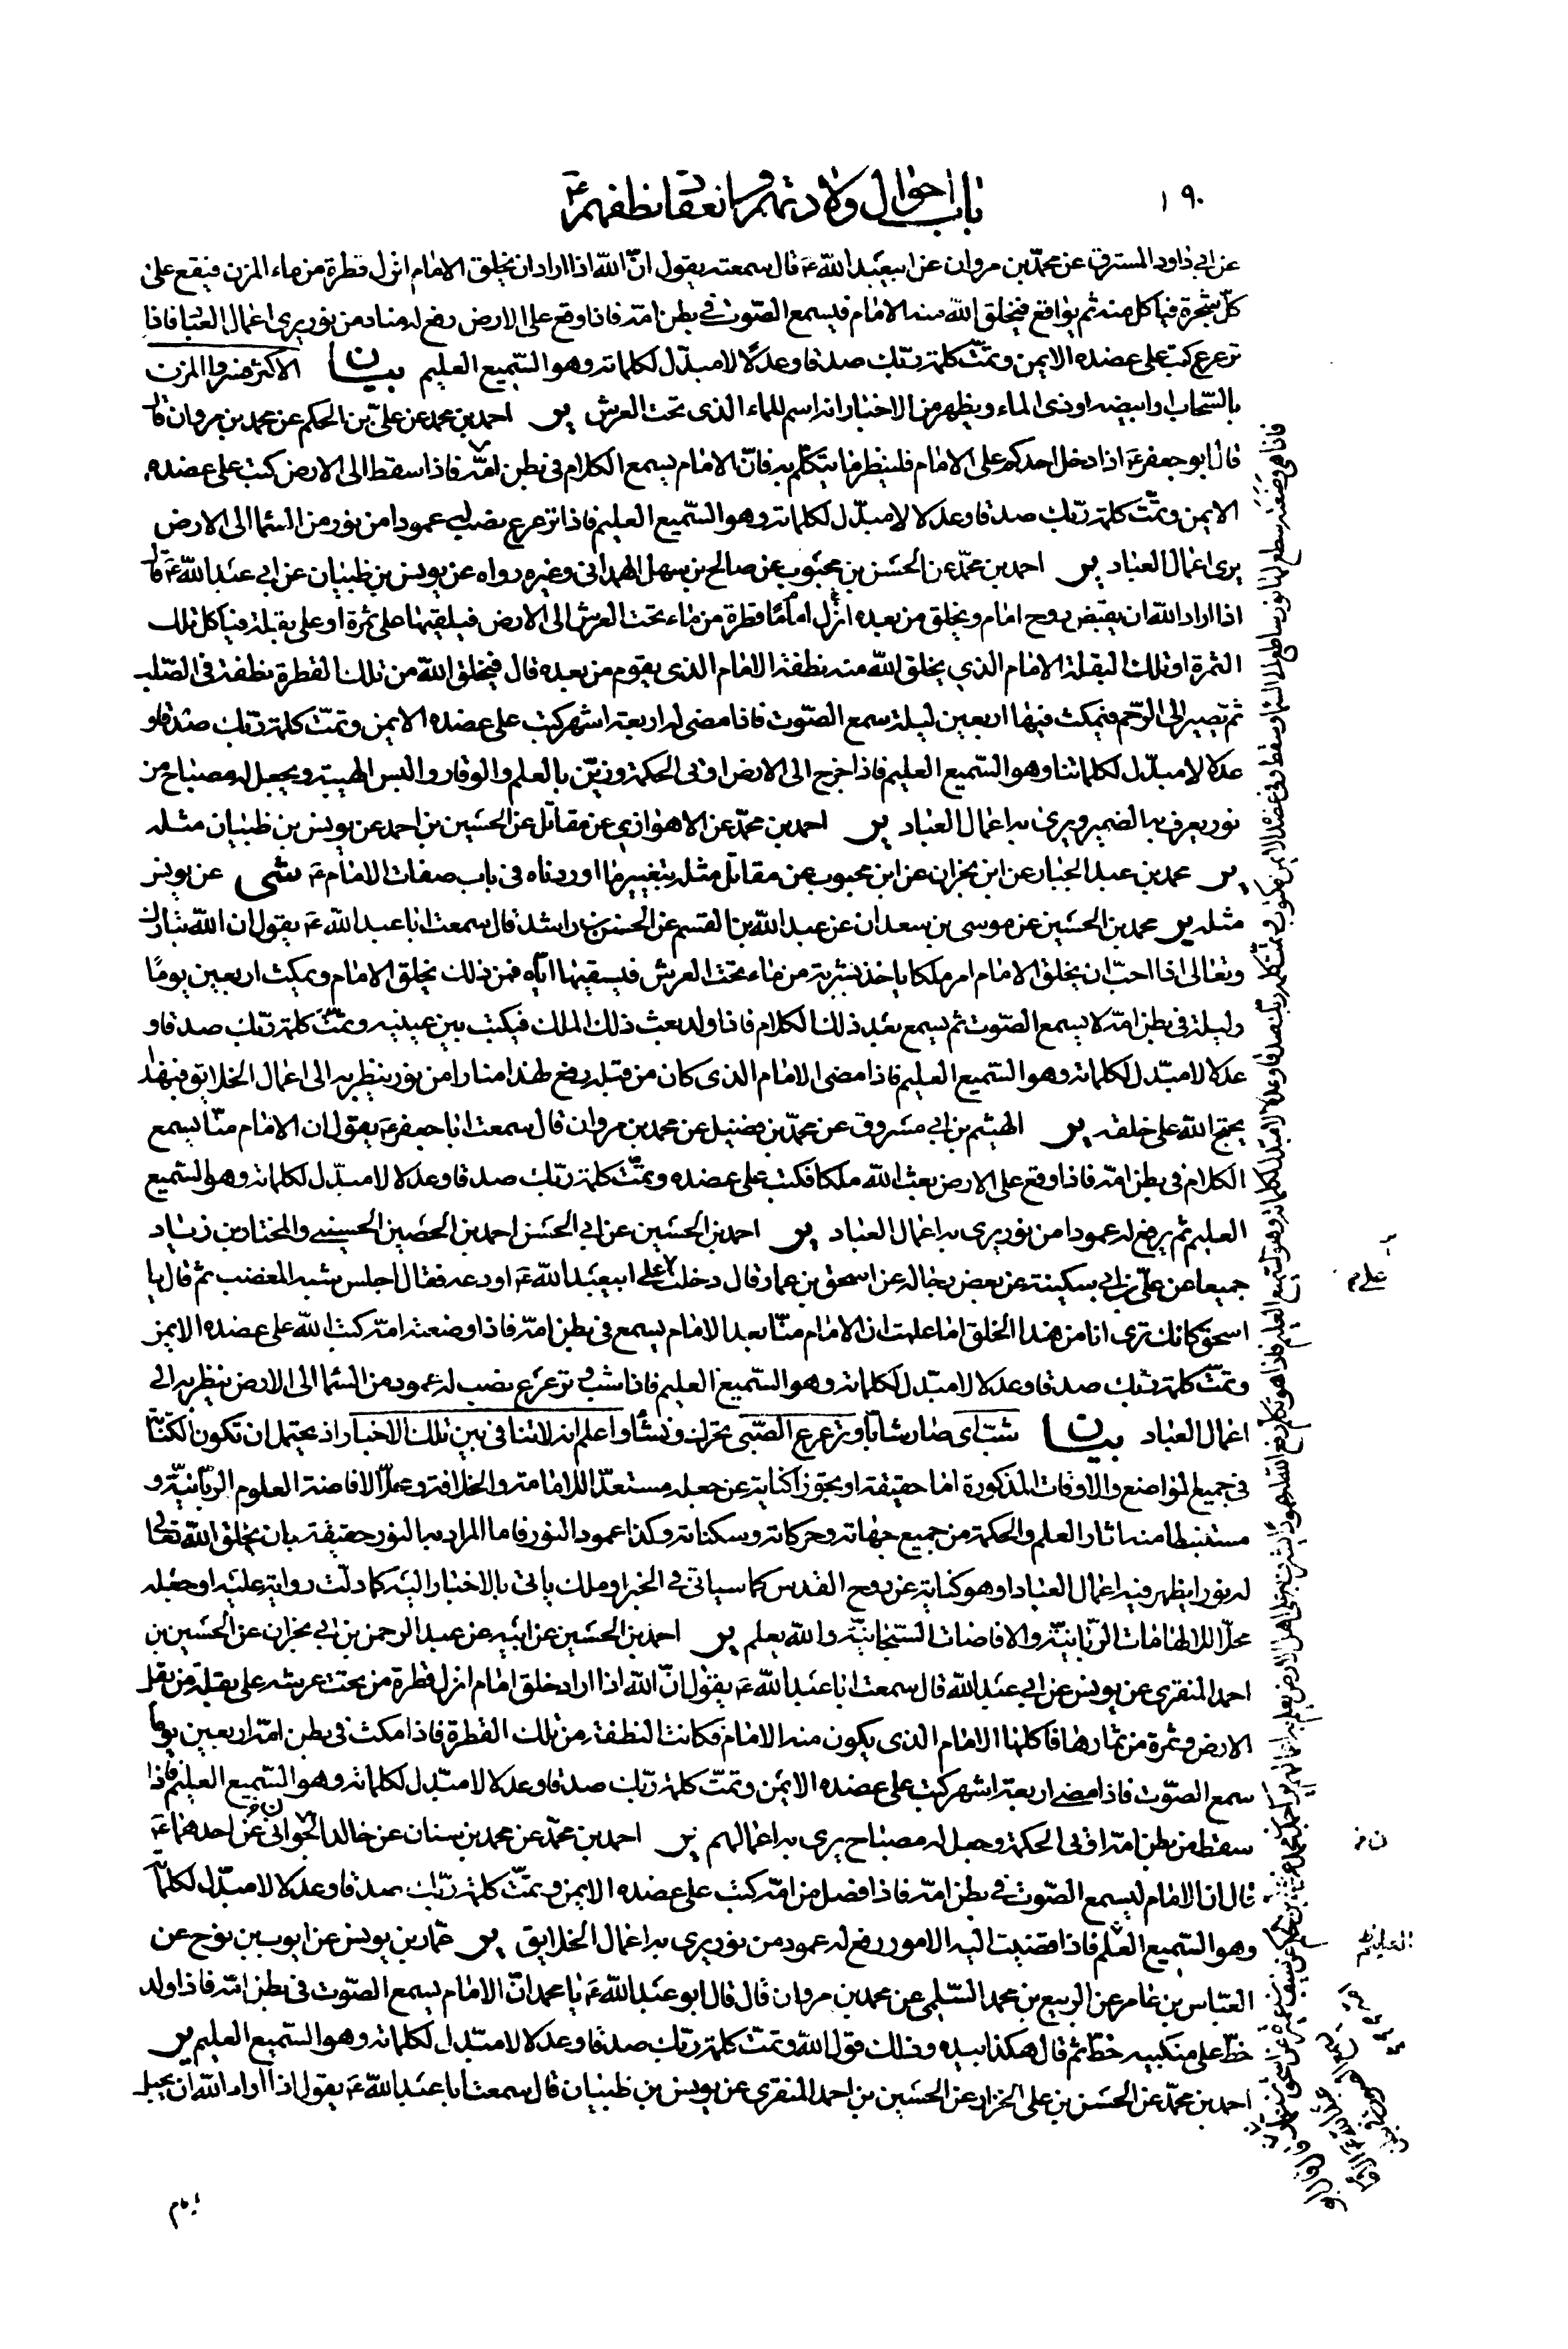 ١٩٠
باب احوال ولادتهم و انعقاد نطفهم
عن ابي داود المسترق عن محمد بن مروان عن ابيعبد الله ع قال سمعته يقول انّ الله اذا اراد ان يخلق الامام انزل قطرة من ماء المزن فيقع على
كلّ شجرة فياكل منه ثم يواقع فيخلق الله منه الامام فيسمع الصّوت في بطن امّه فاذا وقع على الارض رفع له منار من نور يرى اعمال العباد فاذا
ترعرع كتب على عضده الايمن وتمّت كلمة ربّك صدقا وعدلا لا مبدّل لكلماته وهو السّميع العليم بيان الاكثر فسّروا المزن
بالسّحاب او ابيضه او ذي الماء ويظهر من الاخبار انه اسم للماء الذى تحت العرش ير احمد بن محمد عن علىّ بن الحكم عن محمد بن مروان قال
قال ابو جعفر ع اذا دخل احدكم على الامام فلينظر ما يتكلّم به فانّ الامام يسمع الكلام في بطن امّه فاذا سقط الى الارض كتب على عضده
الايمن وتمّت كلمة ربّك صدقا وعدلا لا مبدّل لكلماته وهو السّميع العليم فاذا ترعرع نصب له عمودا من نور من السّماء الى الارض
يرى اعمال العباد ير احمد بن محمّد عن الحسن بن محبوب عن صالح بن سهل الهمداني وغيره رواه عن يونس بن ظبيان عن ابي عبد الله ع قال
اذا اراد الله ان يقبض روح امام ويخلق من بعده اماما انزل قطرة من ماء تحت العرش الى الارض فيلقيها على ثمرة او على بقلة فياكل تلك
الثمرة او تلك البقلة الامام الذي يخلق الله منه نطفة الامام الذى يقوم من بعده قال فيخلق الله من تلك القطرة نطفة فى الصّلب
ثم تصير الى الرّحم فيمكث فيها اربعين ليلة سمع الصّوت فاذا مضى له اربعة اشهر كتب على عضده الايمن وتمّت كلمة ربّك صدقا و
عدلا لا مبدّل لكلماتنا وهو السّميع العليم فاذا خرج الى الارض اوتى الحكمة وزيّن بالعلم والوقار والبس الهيبة ويجعل له مصباح من
نور يعرف به الضمير ويرى به اعمال العباد ير احمد بن محمّد عن الاهوازي عن مقاتل عن الحسين بن احمد عن يونس بن ظبيان مثله
ير محمد بن عبد الجبار عن ابن نجران عن ابن محبوب عن مقاتل مثله بتغيير ما اوردناه فى باب صفات الامام ع شى عن يونس
مثله ير محمد بن الحسين عن موسى بن سعدان عن عبد الله بن القسم عن الحسن بن راشد قال سمعت ابا عبد الله ع يقول ان الله تبارك
وتعالى اذا احبّ ان يخلق الامام امر ملكا ياخذ شربة من ماء تحت العرش فيسقيها اياه فمن ذلك يخلق الامام ويمكث اربعين يوما
وليلة فى بطن امّه لا يسمع الصّوت ثم يسمع بعد ذلك الكلام فاذا ولد بعث ذلك الملك فيكتب بين عينيه وتمّت كلمة ربّك صدقا و
عدلا لا مبدّل لكلماته وهو السّميع العليم فاذا مضى الامام الذى كان من قبله رفع لهذا منارا من نور ينظر به الى اعمال الخلايق فبهذا
يحتجّ الله على خلقه ير الهيثم بن ابي مسروق عن محمّد بن فضيل عن محمد بن مروان قال سمعت ابا جعفر ع يقول ان الامام منّا يسمع
الكلام فى بطن امّه فاذا وقع على الارض بعث الله ملكا فكتب على عضده وتمّت كلمة ربّك صدقا وعدلا لا مبدّل لكلماته وهو السّميع
العليم ثم يرفع له عمودا من نور يرى به اعمال العباد ير احمد بن الحسين عن ابي الحسن احمد بن الحصين الحسيني والمختار بن زياد
جميعا عن علىّ بن ابي سكينة عن بعض رجاله عن اسحق بن عمار قال دخلت على ابيعبد الله ع اودعه فقال اجلس شبه المغضب ثم قال يا
اسحق كانك ترى انا من هذا الخلق اما علمت ان الامام منّا بعد الامام يسمع فى بطن امّه فاذا وضعته امّه كتب الله على عضده الايمن
وتمّت كلمة ربّك صدقا وعدلا لا مبدّل لكلماته وهو السّميع العليم فاذا شبّ وترعرع نصب له عمود من السّماء الى الارض ينظر به الى
اعمال العباد بيان شبّ اى صار شابّا وترعرع الصّبى تحرك ونشأ واعلم انه لا تنافى بين تلك الاخبار اذ يحتمل ان تكون الكتابة
فى جميع المواضع والاوقات المذكورة اما حقيقة او تجوّزا كناية عن جعله مستعدّا للامامة والخلافة ومحلّا لافاضة العلوم الربّانيّة و
مستنبطا منه اثار العلم والحكمة من جميع جهاته وحركاته وسكناته وكذا عمود النور فاما المراد به النور حقيقة بان يخلق الله تعالى
له نورا يظهر فيه اعمال العباد او هو كناية عن روح القدس كما سياتى فى الخبر او ملك ياتى بالاخبار اليه كما دلّت رواية عليه او جعله
محلّا للالهامات الربّانيّة والافاضات السبحانيّة والله يعلم ير احمد بن الحسين عن ابيه عن عبد الرحمن بن ابي نجران عن الحسين بن
احمد المنقرى عن يونس عن ابي عبد الله قال سمعت ابا عبد الله ع يقول انّ الله اذا اراد خلق امام انزل قطرة من تحت عرشه على بقلة من بقل
الارض او ثمرة من ثمارها فاكلها الامام الذى يكون منه الامام فكانت النطفة من تلك القطرة فاذا مكث فى بطن امّه اربعين يوما
سمع الصّوت فاذا مضى اربعة اشهر كتب على عضده الايمن وتمّت كلمة ربّك صدقا وعدلا لا مبدّل لكلماته وهو السّميع العليم فاذا
سقط من بطن امّه اوتى الحكمة وجعل له مصباح يرى به اعمالهم ير احمد بن محمّد عن محمد بن سنان عن خالد الجوانى عن احدهما ع
قال ان الامام ليسمع الصّوت فى بطن امّه فاذا فصل من امّه كتب على عضده الايمن وتمّت كلمة ربّك صدقا وعدلا لا مبدّل لكلماته
وهو السّميع العليم فاذا افضيت اليه الامور رفع له عمود من نور يرى به اعمال الخلايق ير عمار بن يونس عن ايوب بن نوح عن
العباس بن عامر عن الربيع بن محمد السّلمى عن محمد بن مروان قال قال ابو عبد الله ع يا محمد انّ الامام يسمع الصّوت فى بطن امّه فاذا ولد
خطّ على منكبيه خطّ ثم قال هكذا بيده وذلك قول الله وتمّت كلمة ربّك صدقا وعدلا لا مبدّل لكلماته وهو السّميع العليم ير
احمد بن محمّد عن الحسن بن على الخزاز عن الحسين بن احمد المنقرى عن يونس بن ظبيان قال سمعت ابا عبد الله ع يقول اذا اراد الله ان يحبل
فاذا هى وضعته سطع لها نور ساطع الى السماء وسقط وفى عضده الايمن مكتوب وتمّت كلمة ربّك صدقا وعدلا لا مبدّل لكلماته وهو السّميع العليم فاذا هو تكلم رفع الله له عمودا يشرف به على اهل الارض يعلم به اعمالهم